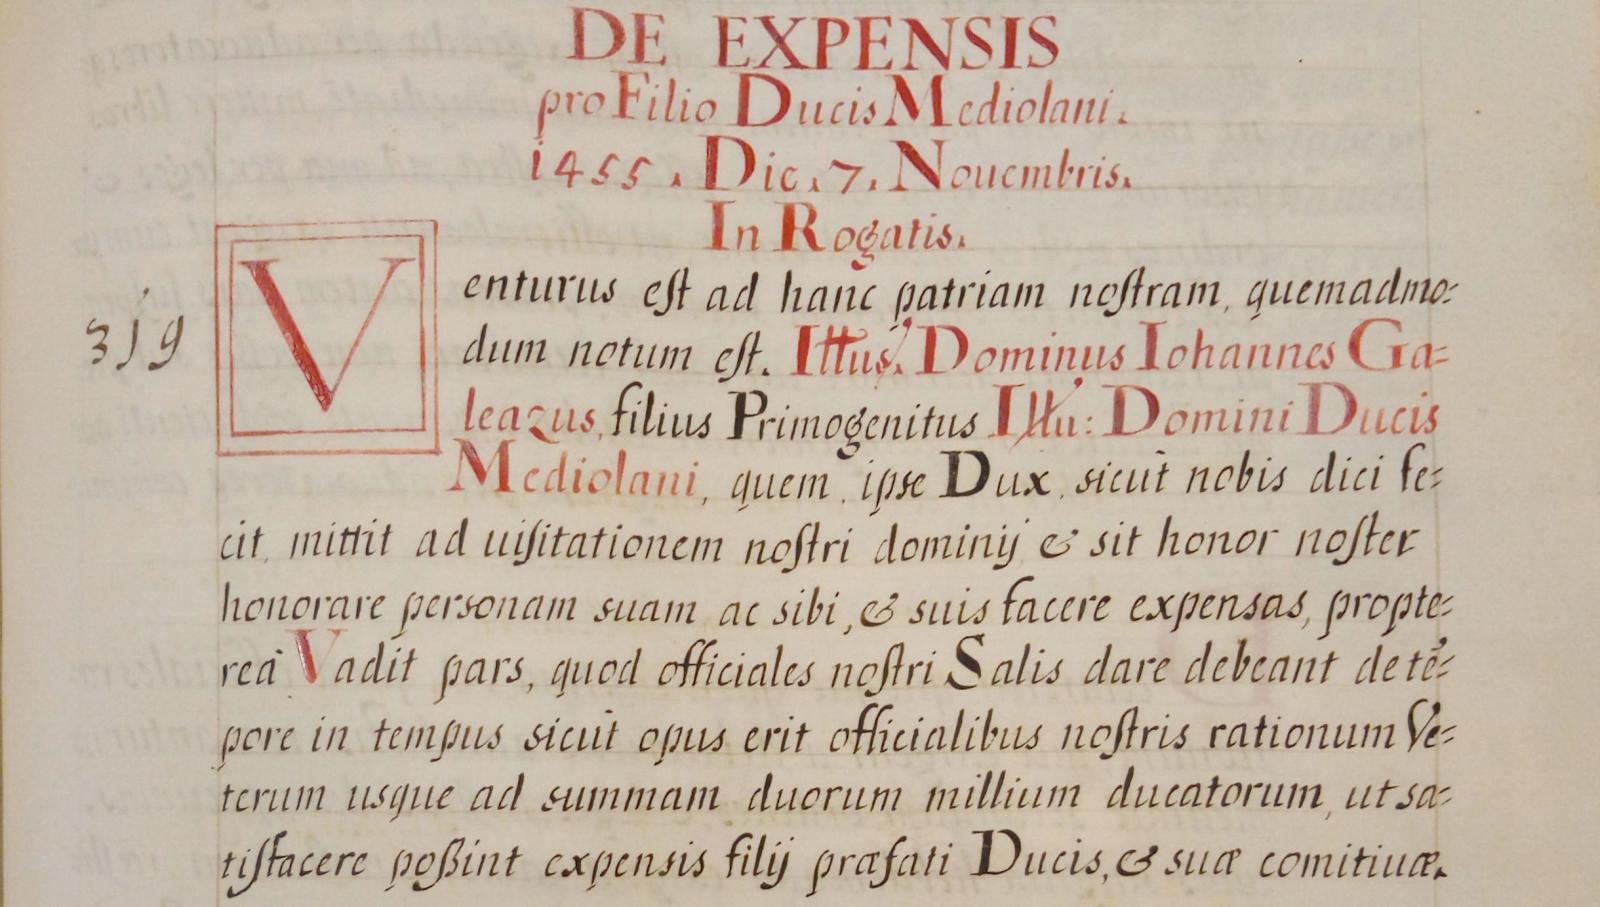 DE EXPENSIS
pro Filio Ducis Mediolani.
1455. Die. 7. Nouembris.
In Rogatis.
Venturus est ad hanc patriam nostram, quemadmo-
319
dum notum est. Illus. Dominus Iohannes Ga-
leazus, filius Primogenitus Illu: Domini Ducis
Mediolani, quem, ipse Dux, sicut nobis dici fe-
cit, mittit ad uisitationem nostri dominij & sit honor noster
honorare personam suam ac sibi, & suis facere expensas, propte-
reà Vadit pars, quod officiales nostri Salis dare debeant de tē-
pore in tempus sicut opus erit officialibus nostris rationum Ve-
terum usque ad summam duorum millium ducatorum, ut sa-
tisfacere poßint expensis filij præfati Ducis, & suæ comitiuæ.